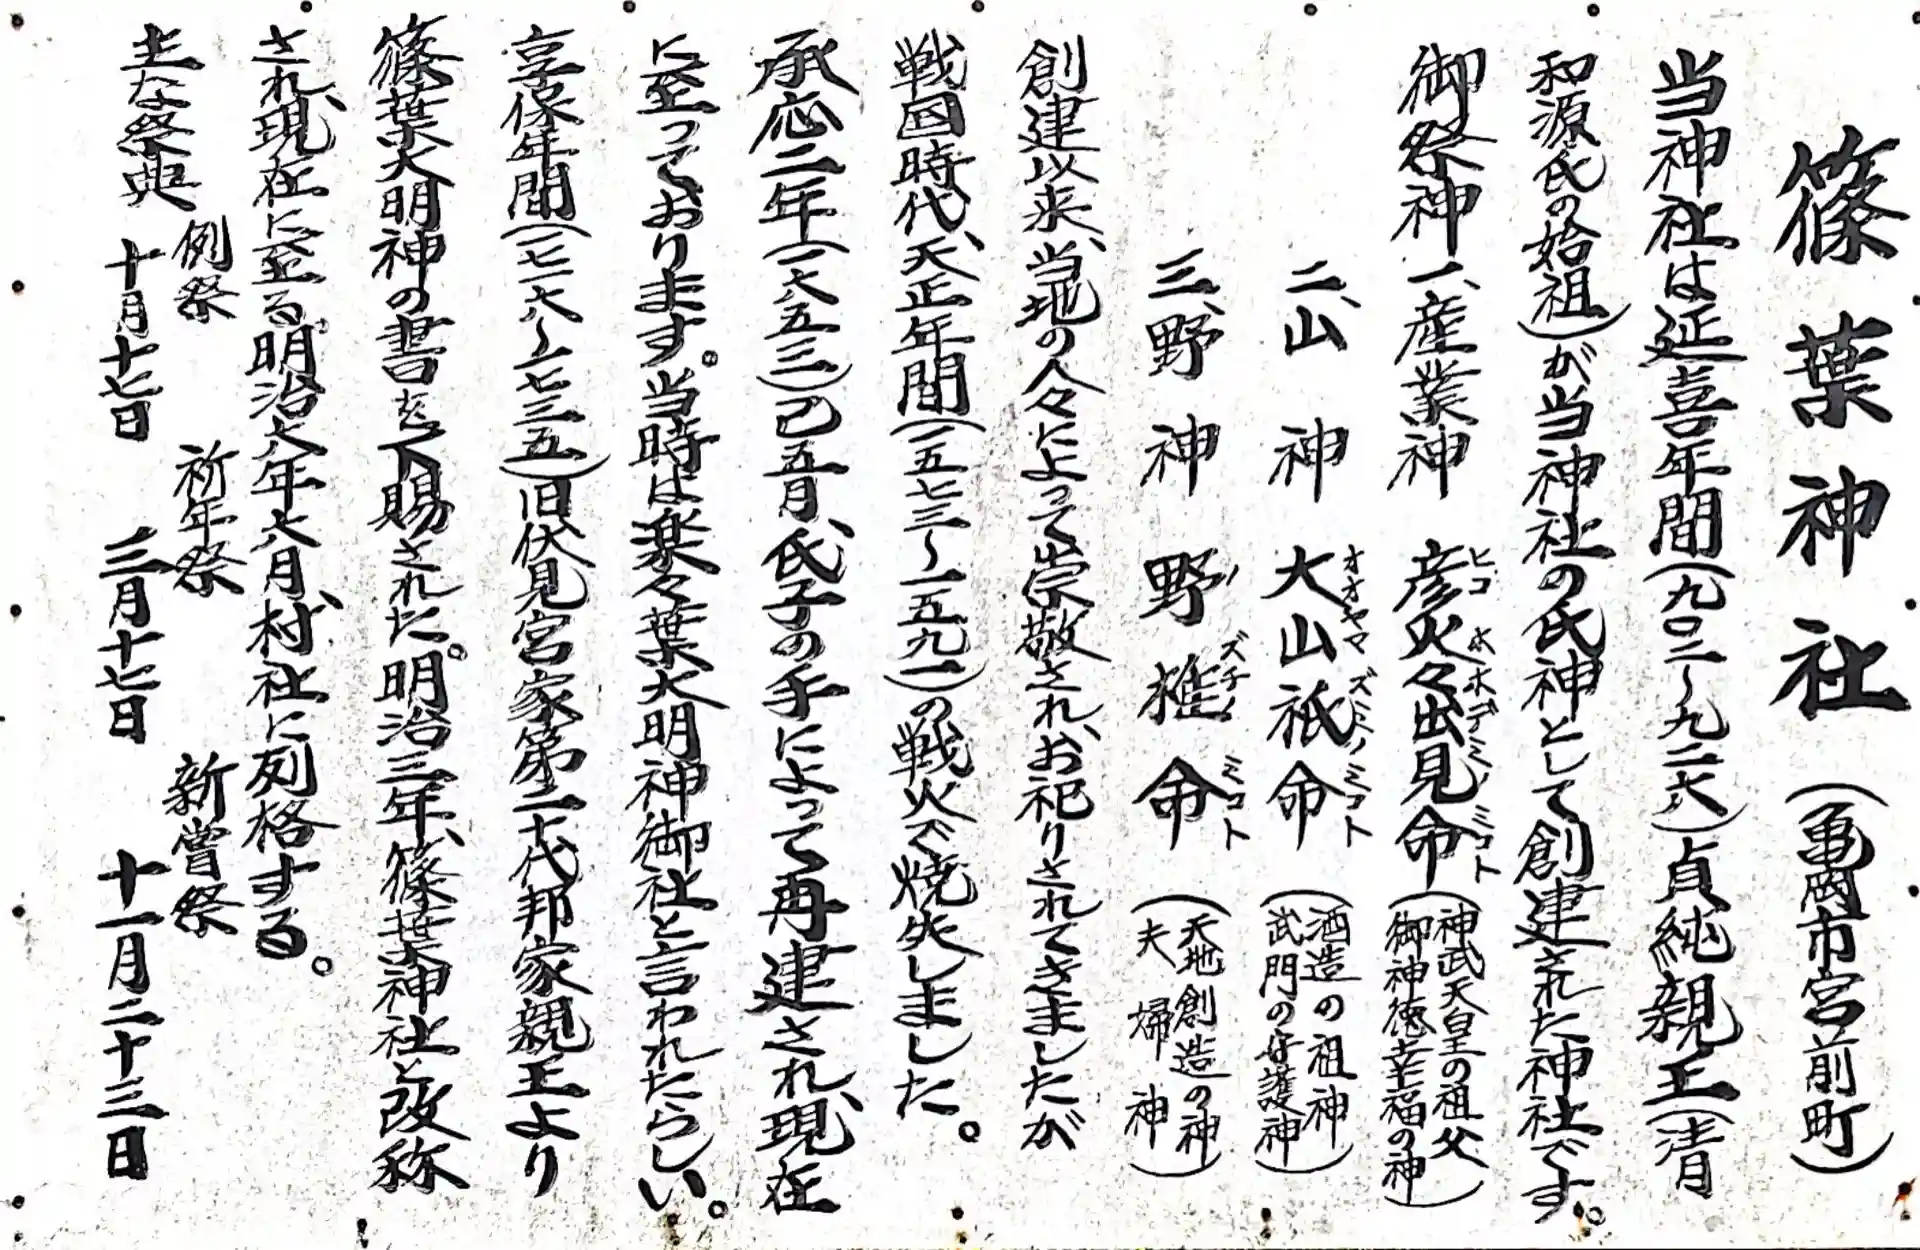 篠葉神社(亀岡市宮前町)
当神社は延喜年間(九〇二〜九二六)貞純親王(清
和源氏の始祖)が当神社の氏神として創建された神社です。
御祭神 一、産業神 彦火々出見命(神武天皇の祖父 御神徳幸福の神)
ヒコ ホホデミノ ミコト
二、山神 大山祇命(酒造の祖神 武門の守護神)
オオヤマ ズミノ ミコト
三、野神 野椎命(天地創造の神 夫婦神)
ノ ズチノ ミコト
創建以来、当地の人々によって崇敬され、お祀りされてきましたが
戦国時代、天正年間(一五七三〜一五九一)の戦火で焼失しました。
承応二年(一六五三)己五月、氏子の手によって再建され、現在
に至っております。当時は楽々葉大明神御社と言われたらしい。
享保年間(一七一六〜一七三五)旧伏見宮家第二十代邦家親王より
篠葉大明神の書を下賜された。明治三年、篠葉神社と改称
され、現在に至る。明治六年六月、村社に列格する。
主な祭典 例祭 十月十七日 祈年祭 三月十七日 新嘗祭 十一月二十三日